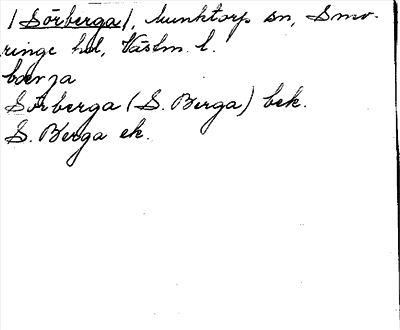 /Sörberga/, Munktorp sn, Snev-
ringe hd, Västm. l.
bærja
Sörberga (S. Berga) bek.
S. Berga ek.